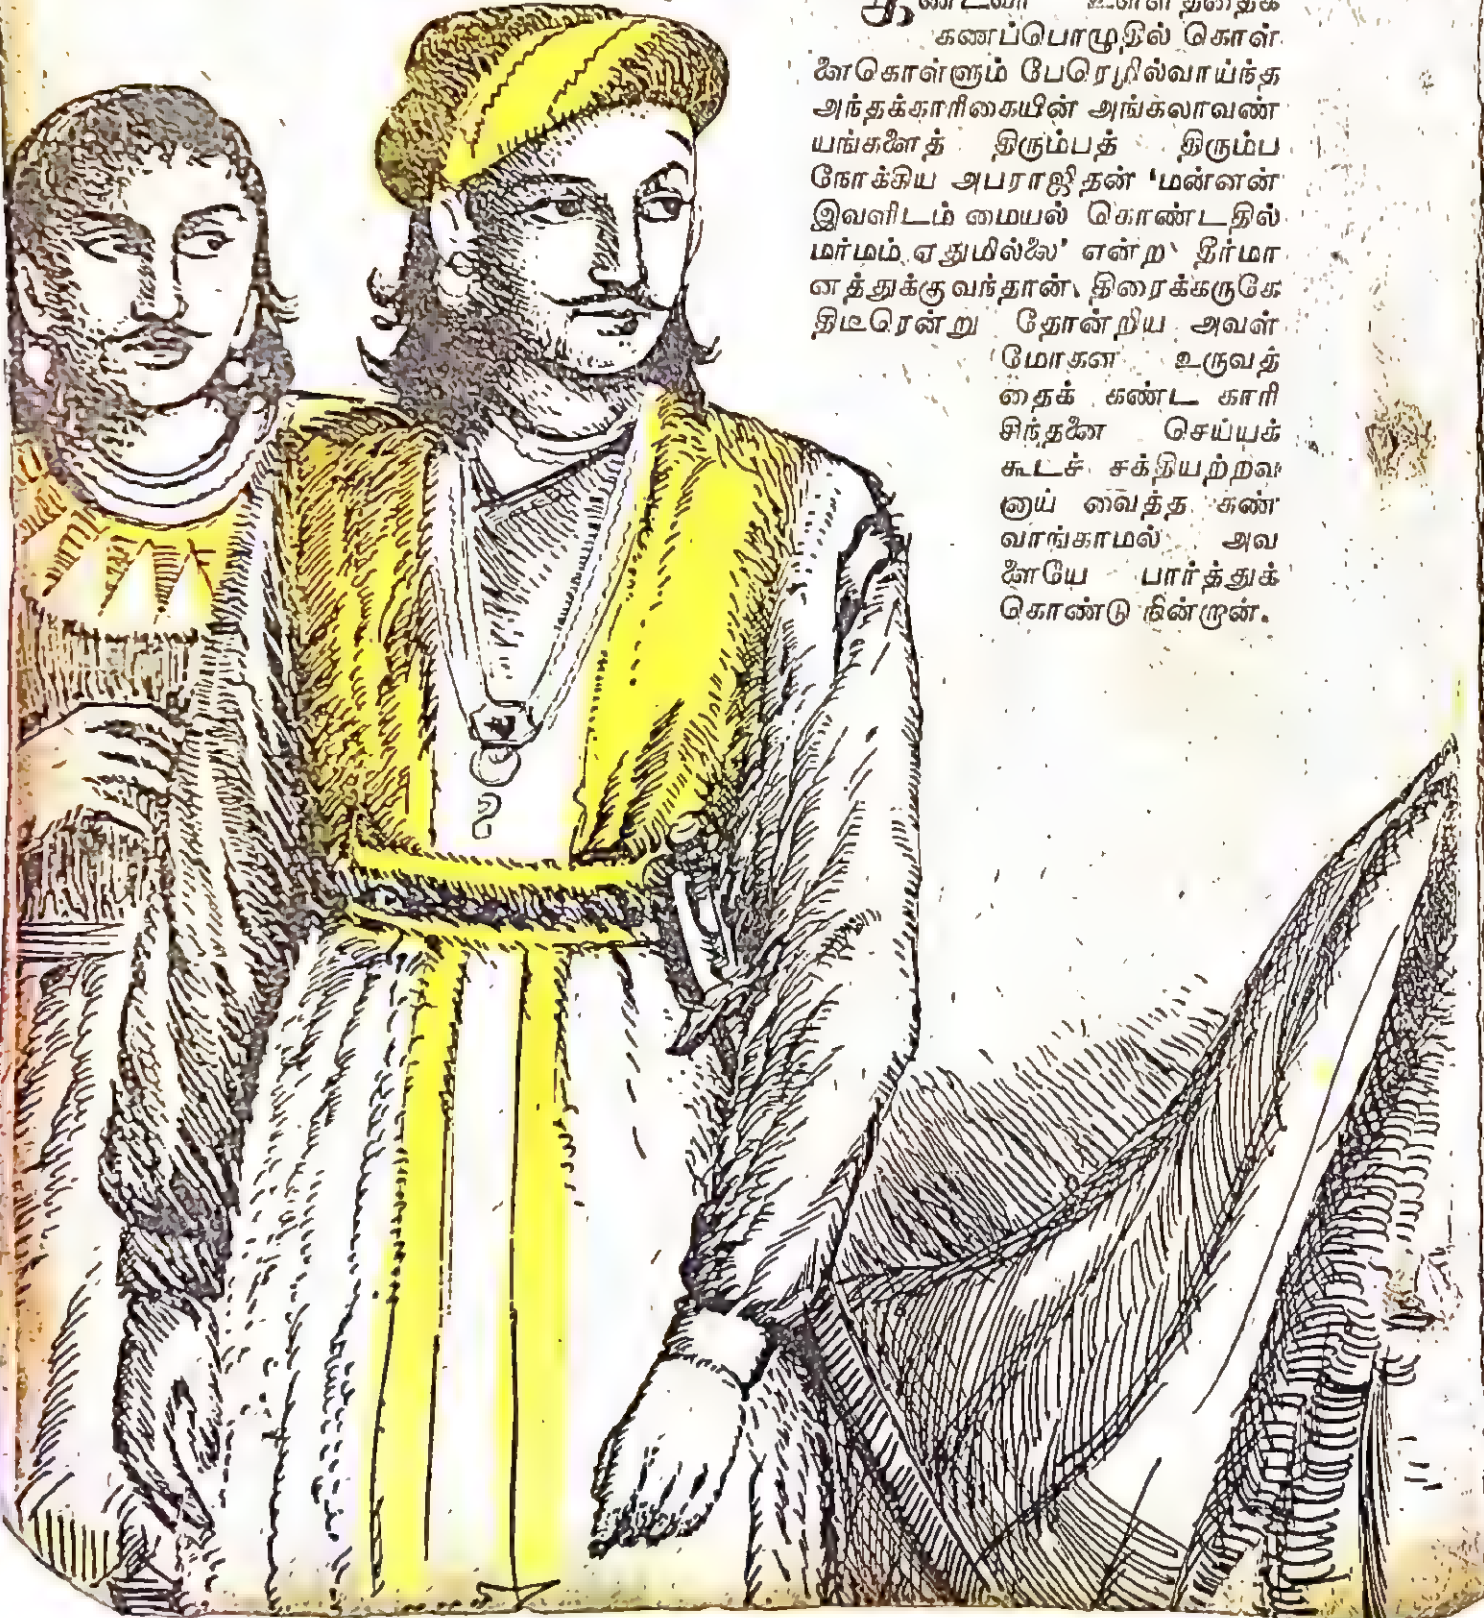 உள்ளத்தைக்
கணப்பொழுதில் கொள்
ளைகொள்ளும் பேரெழில்வாய்ந்த
அந்தக்காரிகையின் அங்கலாவண்
யங்களைத் திரும்பத் திரும்ப
நோக்கிய அபராஜிதன் 'மன்னன்
இவளிடம் மையல் கொண்டதில்
மர்மம் ஏதுமில்லை' என்ற தீர்மா
னத்துக்கு வந்தான். திரைக்கருகே
திடீரென்று தோன்றிய அவள்
மோகன உருவத்
தைக் கண்ட காரி
சிந்தனை செய்யக்
கூடச் சக்தியற்றவ
னாய் வைத்த கண்
வாங்காமல் அவ
ளையே பார்த்துக்
கொண்டு நின்றான்.